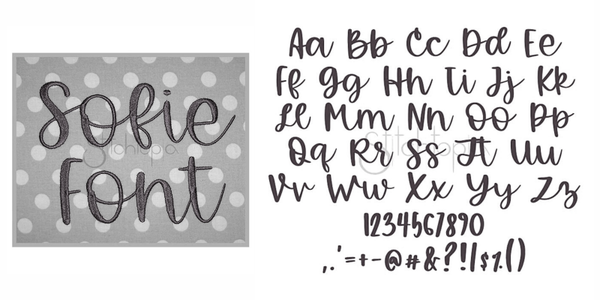 Sofie
Font
Aa Bb Cc Dd Ee
Ff Gg Hh Ii Jj Kk
Ll Mm Nn Oo Pp
Qq Rr Ss Tt Uu
Vv Ww Xx Yy Zz
1234567890
,.'=+-@#&?!|$%()